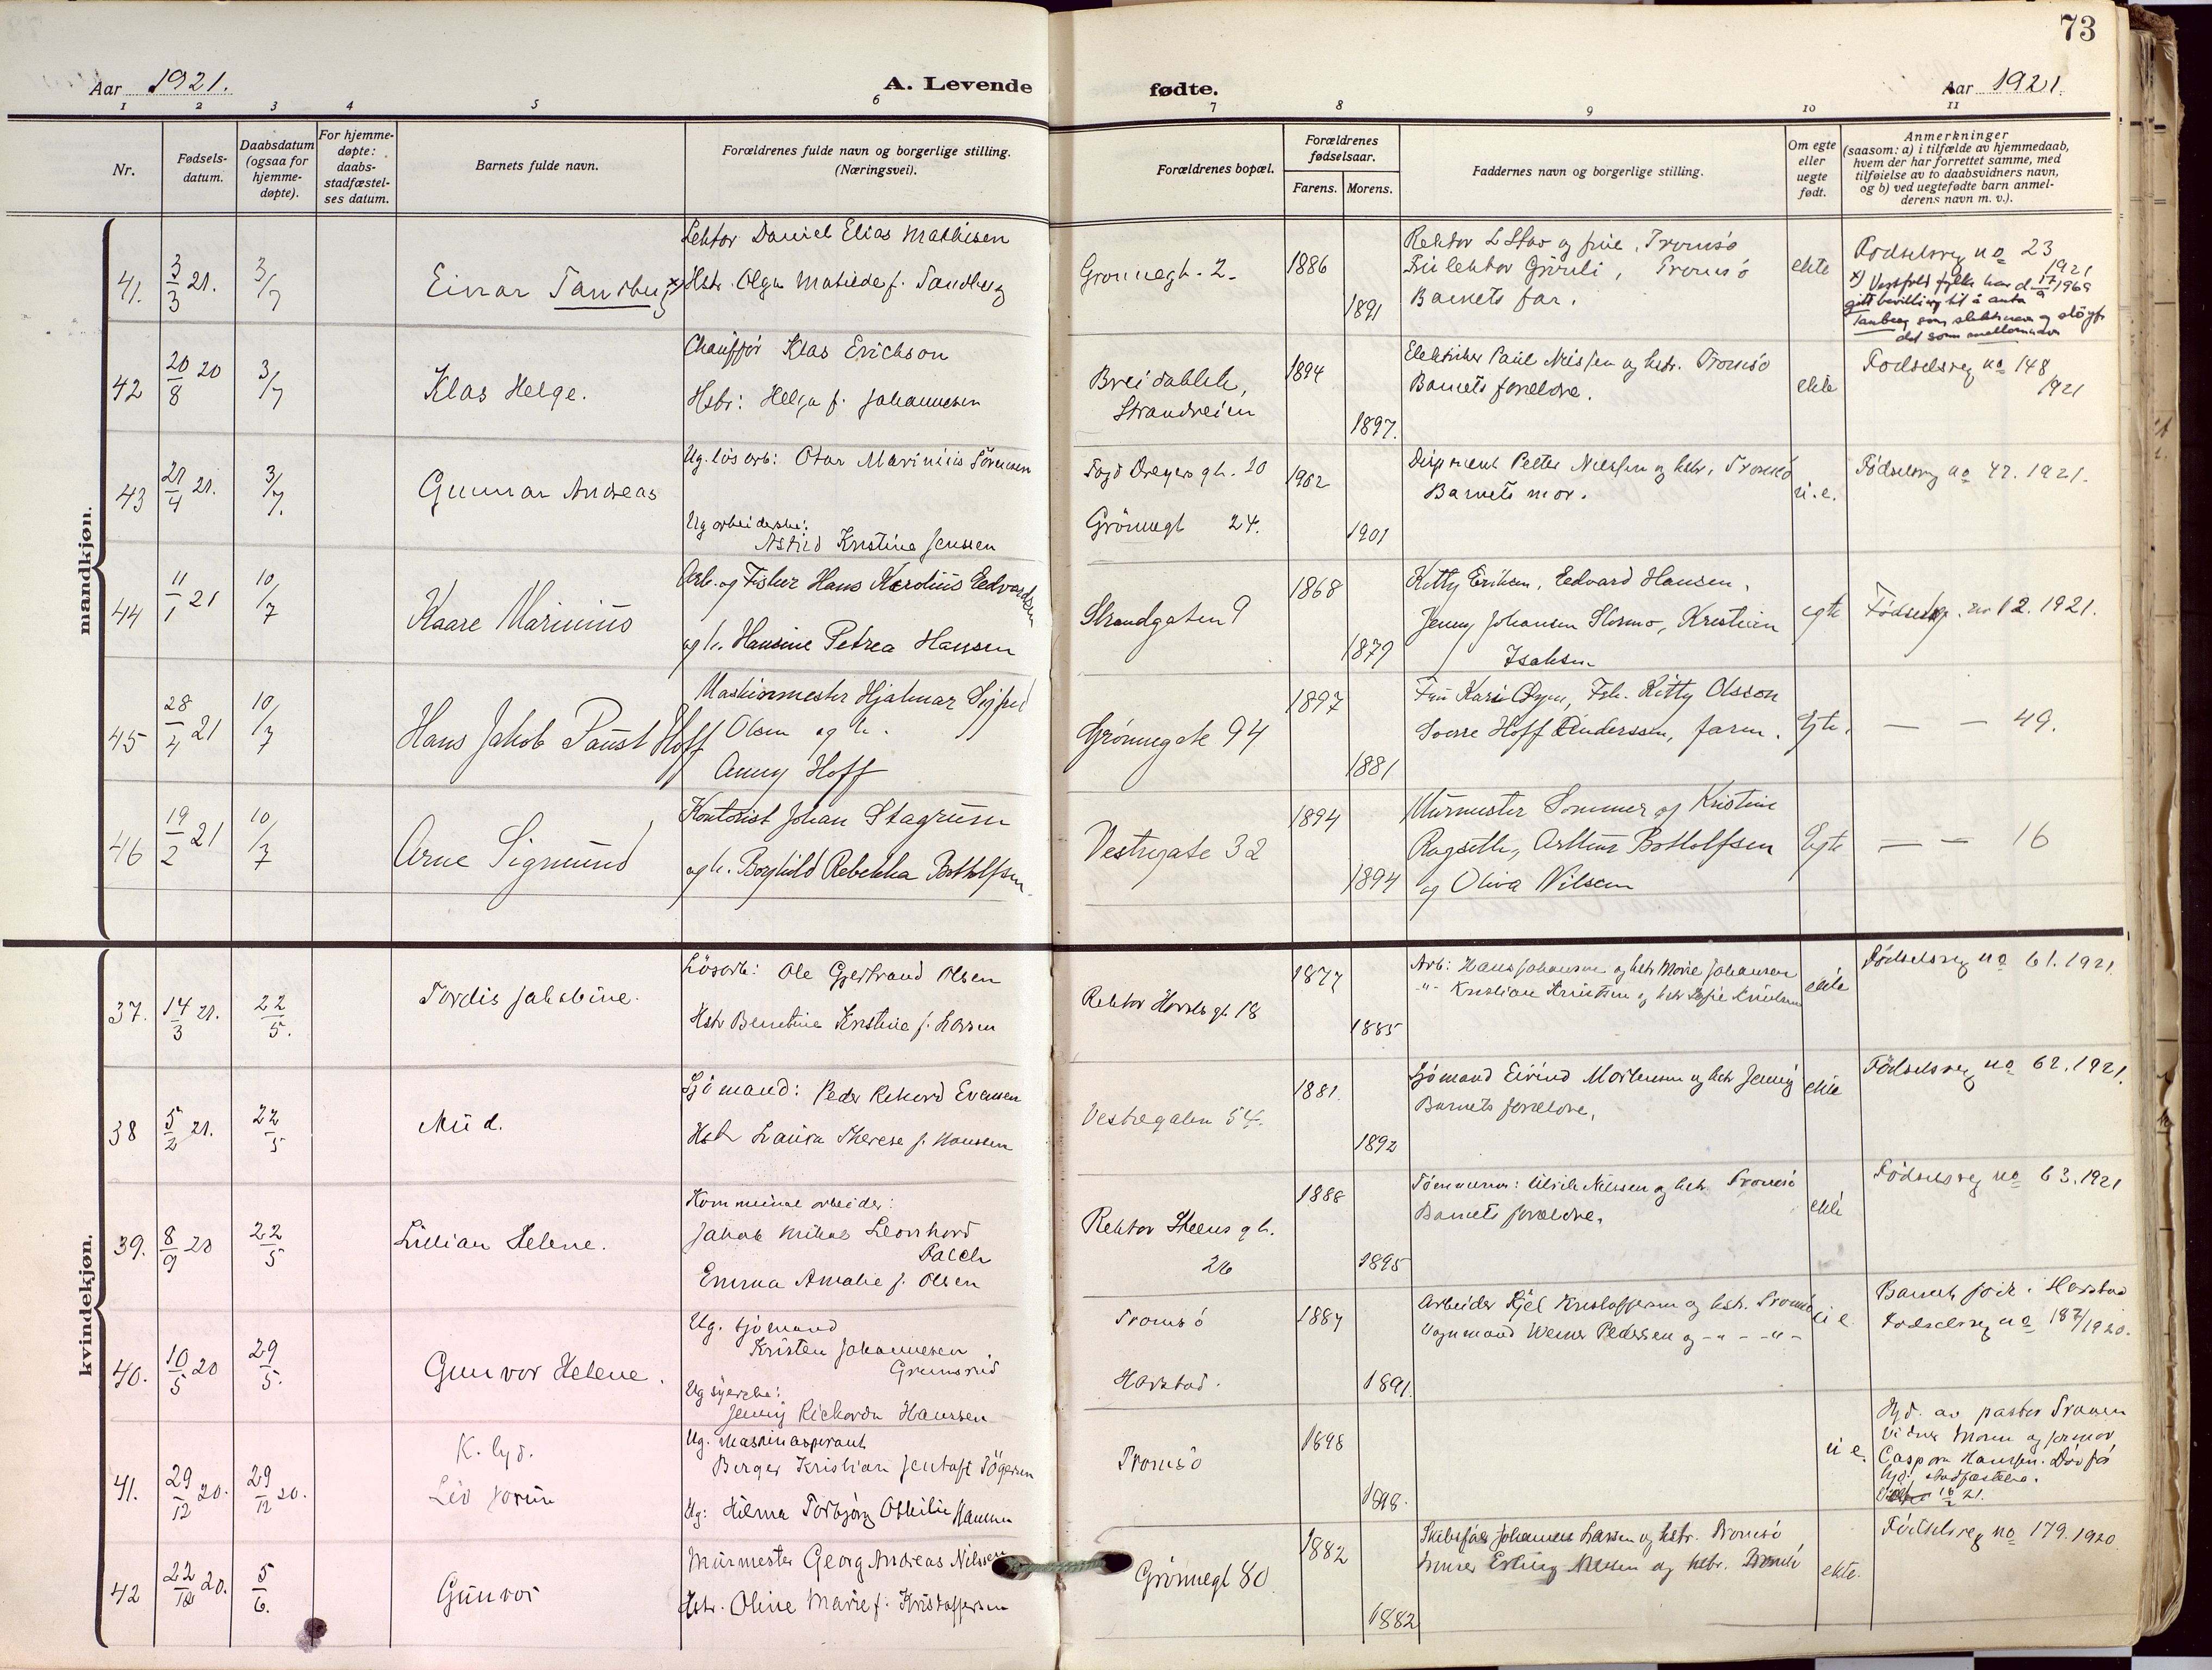 73
Aar 1921. A. Levende fødte. Aar 1921.
1 2 3 4 5 6 7 8 9 10 11
Nr.
Fødsels-
datum.
Daabsdatum
(ogsaa for
hjemme-
døpte).
For hjemme-
døpte:
daabs-
stadfæstel-
ses datum.
Barnets fulde navn.
Forældrenes fulde navn og borgerlige stilling.
(Næringsvei).
Forældrenes bopæl.
Forældrenes
fødselsaar.
Farens. Morens.
Faddernes navn og borgerlige stilling.
Om egte
eller
uegte
født.
Anmerkninger
(saasom: a) i tilfælde av hjemmedaab,
hvem der har forrettet samme, med
tilføielse av to daabsvidners navn,
og b) ved uegtefødte barn anmel-
derens navn m. v.).
mandkjøn.
41. 3/3 21. 3/7 Einar Tandberg x)
Lektor Daniel Elias Mathisen
Hstr. Olga Matilde f. Tandberg
Grønnegt. 2.
1886 1891
Rektor L Stao og frue, Tromsö
Fru lektor , Tromsö
Barnets far.
ekte
Fodselsreg no 23
1921
x) Vestfold fylke har d 17/9 1969
gitt bevilling til å anta
Tanberg som slektsnavn og sløyfe
det som mellomnavn
42 20/8 20 3/7 Klas Helge.
Chauffør Klas Erickson
Hstr: Helga f. Johannesen
Breidablik,
Strandveien
1894 1897.
Elektriker Paul Nilssen og hstr. Tromsö
Barnets foreldre.
ekte
Fodselsreg no 148
1921
43 21/4 21. 3/7. Gunnar Andreas
Ug. lösarb: Otar Marinius Sörensen
Ug arbeiderske:
Astrid Kristine Jenssen
Fogd Dreyers gt. 20
Grönnegt 24.
1902 1901
Disponent Petter Nilssen og hstr. Tromsö
Barnets mor.
u.e.
Födselsreg no 42. 1921.
44 11/1 21 10/7 Kaare Marinius
Arb. og Fisker Hans Karolius Edvardsen
og h. Hansine Petrea Hansen
Strandgaten 9
1868 1879
Kitty Eriksen, Edvard Hansen,
Jenny Johansen Slosmo, Kristian
Isaksen
egte
Fødselsreg. no 12. 1921.
45 28/4 21 10/7 Hans Jakob Paust Hoff
Maskinmester Hjalmar Sigfred
Olsen og h.
Anny Hoff
Grønnegate 94
1897 1881
Fru Kari Øyen, Frk. Kitty Olsson
Sverre Hoff Anderssen, faren.
Egte.
— — 49.
46 19/2 21 10/7 Arne Sigmund
Kontorist Johan Stagrum
og h. Borghild Rebekka Bottolfsen.
Vestregate 32
1894 1894
Murmester Sommer og Kristine
Rogseth, Arthur Bottolfsen
og Oliva Nilsen
Egte
— — 16
kvindekjøn.
37. 14/3 21. 22/5. Tordis Jakobine.
Lösarb: Ole Gjertrand Olsen
Hstr Berntine Kristine f. Larsen
Rektor Horsts gt. 18
1877 1885
Arb: Hans Johansen og hstr Marie Johansen
-"- Kristian Knutsen og hstr Sofie Knutsen
ekte
Födselsreg no 61. 1921.
38 5/2 21. 22/5 Aud.
Sjömand: Peder Rikard Evensen
Hstr Laura Therese f. Hanssen
Vestregaten 54.
1881. 1892
Sjömand Eivind Mortensen og hstr Jenny
Barnets foreldre.
ekte
Födselsreg no 62. 1921.
39. 8/9 20 22/5 Lillian Helene.
Kommune arbeider:
Jakob Mikal Leonhard
Falch
Emma Amalie f. Olsen
Rektor Steens gt.
26
1888 1895
Tömmerm: Ulrik Nilssen og hstr. Tromsö
Barnets foreldre.
ekte
Födselsreg no 63. 1921
40. 10/5 20 29/5. Gunvor Helene.
Ug. sjömand
Kristen Johannesen
Grumsrud
Ug syerske:
Jenny Rikarda Hanssen
Tromsö
Harstad.
1887 1891.
Arbeider Kjel Kristoffersen og hstr. Tromsö
Vognmand Werner Pedersen og -"- -"-
u e
Barnet født i Harstad
Fodselsreg no 187/1920.
41. 29/12 20. 29/12 20. K. hjd.
Liv Jorun
Ug. Maskinaspirant
Berger Kristian Jentoft Tögersen
Ug: Hilma Torbjörg Othilie Hammer
Tromsö
1898 1898.
u e.
Hjd. av pastor Tranen
Vidner Moren og jormor
Caspara Hanssen. Död før
hjd. stadfæstelse.
16/2 21.
42 22/12 20. 5/6. Gunvor
Murmester Georg Andreas Nilssen
Hstr. Oline Marie f. Kristoffersen
Grønnegt 80
1882 1882
Skibsfører Johannes Larsen og hstr. Tromsö
Murer Erling Nilsen og hstr. Tromsö
ekte.
Födselsreg no 179. 1920.